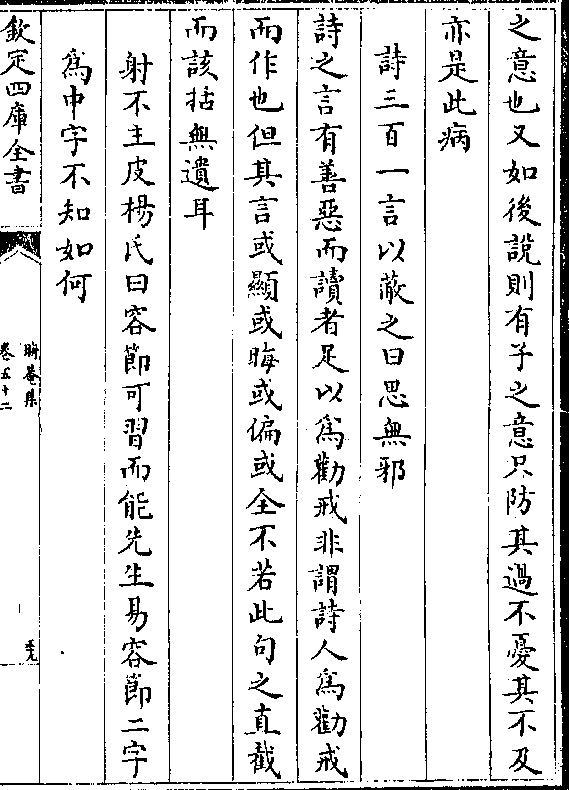 之意也又如後說則有子之意只防其過不憂其不及
亦是此病
詩三百一言以蔽之曰思無邪
詩之言有善惡而讀者足以為勸戒非謂詩人為勸戒
而作也但其言或顯或晦或偏或全不若此句之直截
而該括無遺耳
射不主皮楊氏曰容節可習而能先生易容節二字
為中字不知如何
欽定四庫全書
晦菴集
卷五十二